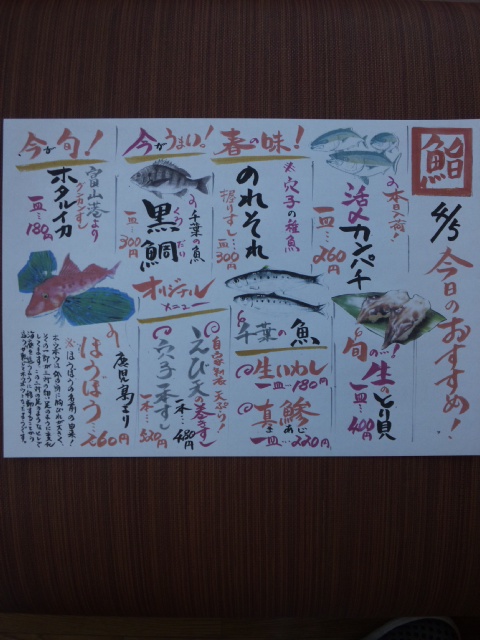 鮨
4/5
今日のおすすめ!
本日入荷!
活〆カンパチ
一皿…260円
旬の…!
生のとり貝
一皿…400円
春の味!
※穴子の稚魚
のれそれ
握りすし…
一皿300円
千葉の魚
生いわし
一皿…180円
真鯵
あじ
一皿…220円
今がうまい。
千葉の魚
黒鯛
くろだい
一皿…300円
オリジナル
メニュー
自家製天ぷら!
えび天の巻きすし
一本…480円
穴子一本すし
一本…520円
今が旬!
富山産より
グンカンすし
ホタルイカ
一皿…180円
鹿児島より
ほうぼう…260円
※ほうぼうの名前の由来!